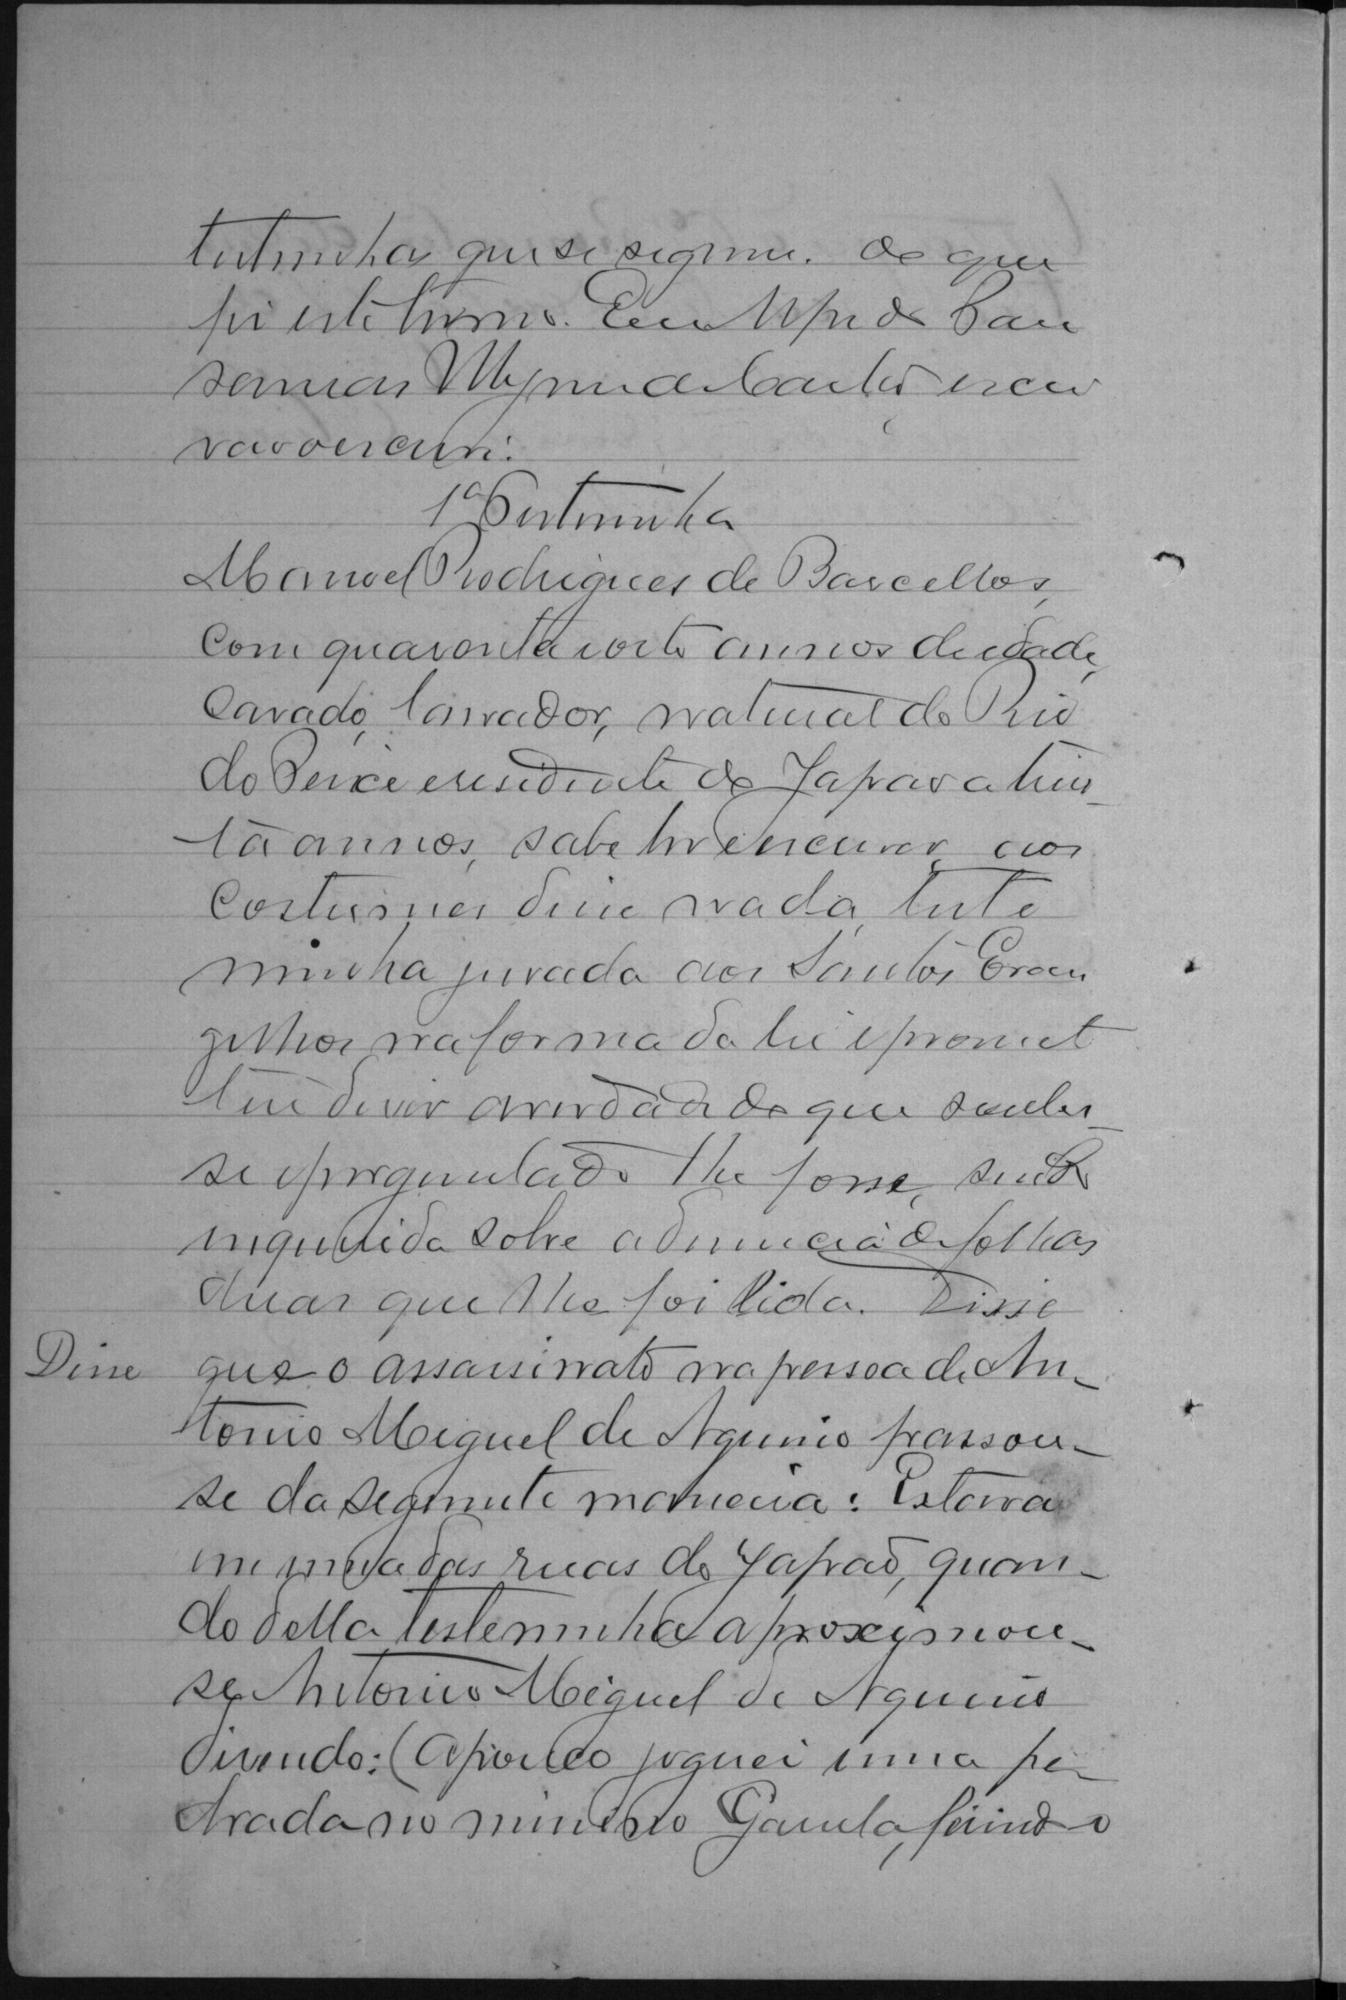 testemunhas que se seguem. do que
fiz este termo. Eu
escri
vão o escrevi.
1ª Testemunha
Manoel Rodrigues de Barcellos,
com quarenta e oito annos de idade,
casado, lavrador, natural do Rio
do Peixe e residente do Japão a trin-
ta annos, sabe ler e escrever, aos
costumes disse nada, teste
munha jurada aos Santos Evan
gelhos na forma da lei e promet
teu dizer a verdade do que soubes-
se e perguntado lhe fosse, sendo
inquirida sobre a denuncia de folhas
duas que lhe foi lida. Disse
Disse que o assassinato na pessoa de An-
tonio Miguel de Aquino passou-
se da seguinte maneira: Estava
em uma das ruas do Japão, quan-
do della testemunha aproximou-
se Antonio Miguel de Aquino
dizendo: (a pouco joguei uma pe-
drada no menino Gamela, ferindo o